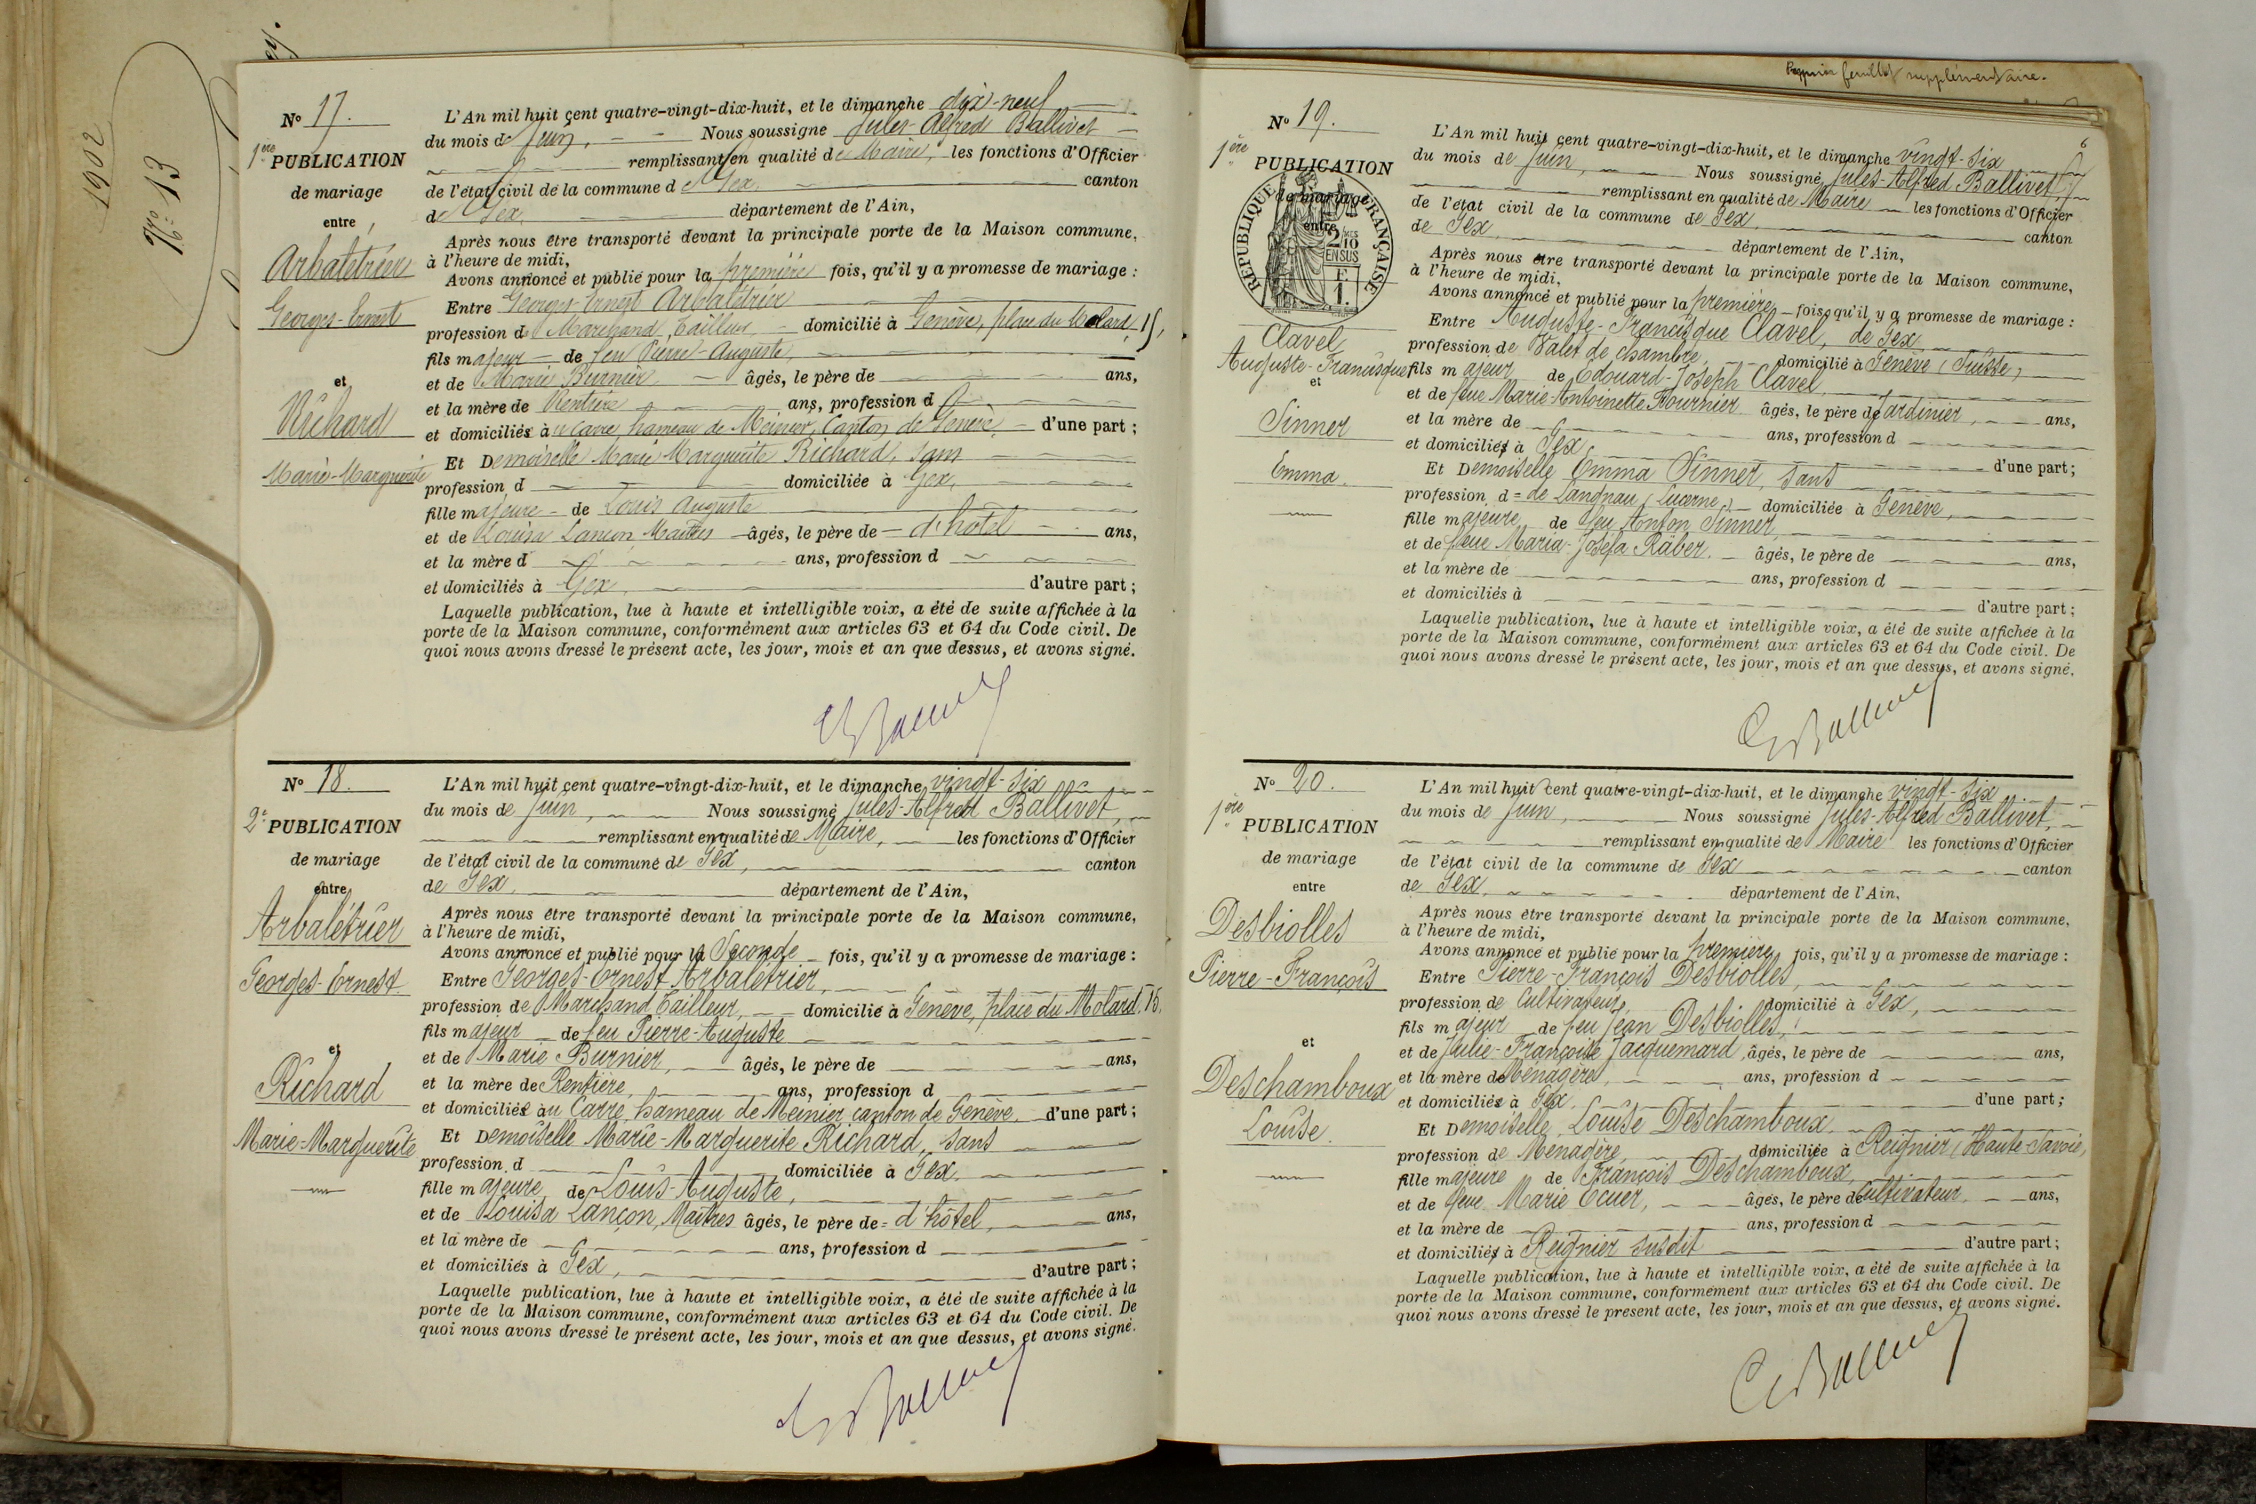 1902
No. 13
No 17.
1ère PUBLICATION
de mariage
entre
Arbalétrier
Georges-Ernest
et
Richard
Marie-Marguerite
L'An mil huit cent quatre-vingt-dix-huit, et le dimanche dix-neuf
du mois de Juin, Nous soussigné Jules-Alfred Ballivet
remplissant en qualité de Maire, les fonctions d'Officier
de l'état civil de la commune de Gex, canton
de Gex, département de l'Ain,
Après nous être transporté devant la principale porte de la Maison commune,
à l'heure de midi,
Avons annoncé et publié pour la première fois, qu'il y a promesse de mariage :
Entre Georges-Ernest Arbalétrier
profession de Marchand Tailleur, domicilié à Genève, place du Molard, 15,
fils majeur de feu Pierre-Auguste,
et de Marie Burnier âgés, le père de ans,
et la mère de Rentière ans, profession d
et domiciliés à u Carre, hameau de Meinier, Canton de Genève, d'une part ;
Et Demoiselle Marie Marguerite Richard, sans
profession d domiciliée à Gex,
fille majeure de Louis Auguste
et de Louisa Lançon, Maîtres âgés, le père de d'hôtel ans,
et la mère d ans, profession d
et domiciliés à Gex, d'autre part ;
Laquelle publication, lue à haute et intelligible voix, a été de suite affichée à la
porte de la Maison commune, conformément aux articles 63 et 64 du Code civil. De
quoi nous avons dressé le présent acte, les jour, mois et an que dessus, et avons signé.
No 18.
2e PUBLICATION
de mariage
entre
Arbalétrier
Georges-Ernest
et
Richard
Marie-Marguerite
L'An mil huit cent quatre-vingt-dix-huit, et le dimanche vingt-six
du mois de Juin, Nous soussigné Jules-Alfred Ballivet,
remplissant en qualité de Maire, les fonctions d'Officier
de l'état civil de la commune de Gex, canton
de Gex, département de l'Ain,
Après nous être transporté devant la principale porte de la Maison commune,
à l'heure de midi,
Avons annoncé et publié pour la Seconde fois, qu'il y a promesse de mariage :
Entre Georges-Ernest Arbalétrier,
profession de Marchand Tailleur, domicilié à Genève, place du Molard, 15,
fils majeur de feu Pierre-Auguste
et de Marie Burnier, âgés, le père de ans,
et la mère de Rentière, ans, profession d
et domiciliés àu Carre, hameau de Meinier, canton de Genève, d'une part ;
Et Demoiselle Marie-Marguerite Richard, sans
profession d domiciliée à Gex,
fille majeure de Louis-Auguste,
et de Louisa Lançon, Maîtres âgés, le père de = d'hôtel, ans,
et la mère de ans, profession d
et domiciliés à Gex, d'autre part ;
Laquelle publication, lue à haute et intelligible voix, a été de suite affichée à la
porte de la Maison commune, conformément aux articles 63 et 64 du Code civil. De
quoi nous avons dressé le présent acte, les jour, mois et an que dessus, et avons signé.
Premier feuillet supplémentaire.
6
No 19.
1ère PUBLICATION
de mariage
entre
RÉPUBLIQUE FRANÇAISE
2/10
EN SUS
Clavel
Auguste-Francisque
et
Sinner
Emma.
L'An mil huit cent quatre-vingt-dix-huit, et le dimanche vingt-six
du mois de Juin, Nous soussigné Jules-Alfred Ballivet,
remplissant en qualité de Maire les fonctions d'Officier
de l'état civil de la commune de Gex, canton
de Gex, département de l'Ain,
Après nous être transporté devant la principale porte de la Maison commune,
à l'heure de midi,
Avons annoncé et publié pour la première fois, qu'il y a promesse de mariage :
Entre Auguste-Francisque Clavel, de Gex,
profession de Valet de chambre, domicilié à Genève (Suisse)
fils majeur de Edouard-Joseph Clavel,
et de feue Marie-Antoinette Fournier âgés, le père de Jardinier, ans,
et la mère de ans, profession d
et domiciliés à Gex d'une part ;
Et Demoiselle Emma Sinner, sans
profession d = de Langnau (Lucerne), domiciliée à Genève,
fille majeure de feu Anton Sinner,
et de feue Maria-Joséfa Räber. âgés, le père de ans,
et la mère de ans, profession d
et domiciliés à d'autre part ;
Laquelle publication, lue à haute et intelligible voix, a été de suite affichée à la
porte de la Maison commune, conformément aux articles 63 et 64 du Code civil. De
quoi nous avons dressé le présent acte, les jour, mois et an que dessus, et avons signé.
No 20.
1ère PUBLICATION
de mariage
entre
Desbiolles
Pierre-François
et
Deschamboux
Louise.
L'An mil huit cent quatre-vingt-dix-huit, et le dimanche vingt-six
du mois de Juin, Nous soussigné Jules-Alfred Ballivet,
remplissant en qualité de Maire les fonctions d'Officier
de l'état civil de la commune de Gex canton
de Gex, département de l'Ain,
Après nous être transporté devant la principale porte de la Maison commune,
à l'heure de midi,
Avons annoncé et publié pour la première fois, qu'il y a promesse de mariage :
Entre Pierre-François Desbiolles,
profession de Cultivateur, domicilié à Gex,
fils majeur de feu Jean Desbiolles,
et de Julie-Françoise Jacquemard, âgés, le père de ans,
et la mère de Ménagère, ans, profession d
et domiciliés à Gex. d'une part ;
Et Demoiselle Louise Deschamboux
profession de Ménagère, domiciliée à Reignier (Haute-Savoie,
fille majeure de François Deschamboux,
et de feue Marie Ecuer, âgés, le père de Cultivateur, ans,
et la mère de ans, profession d
et domiciliés à Reignier susdit d'autre part ;
Laquelle publication, lue à haute et intelligible voix, a été de suite affichée à la
porte de la Maison commune, conformément aux articles 63 et 64 du Code civil. De
quoi nous avons dressé le présent acte, les jour, mois et an que dessus, et avons signé.